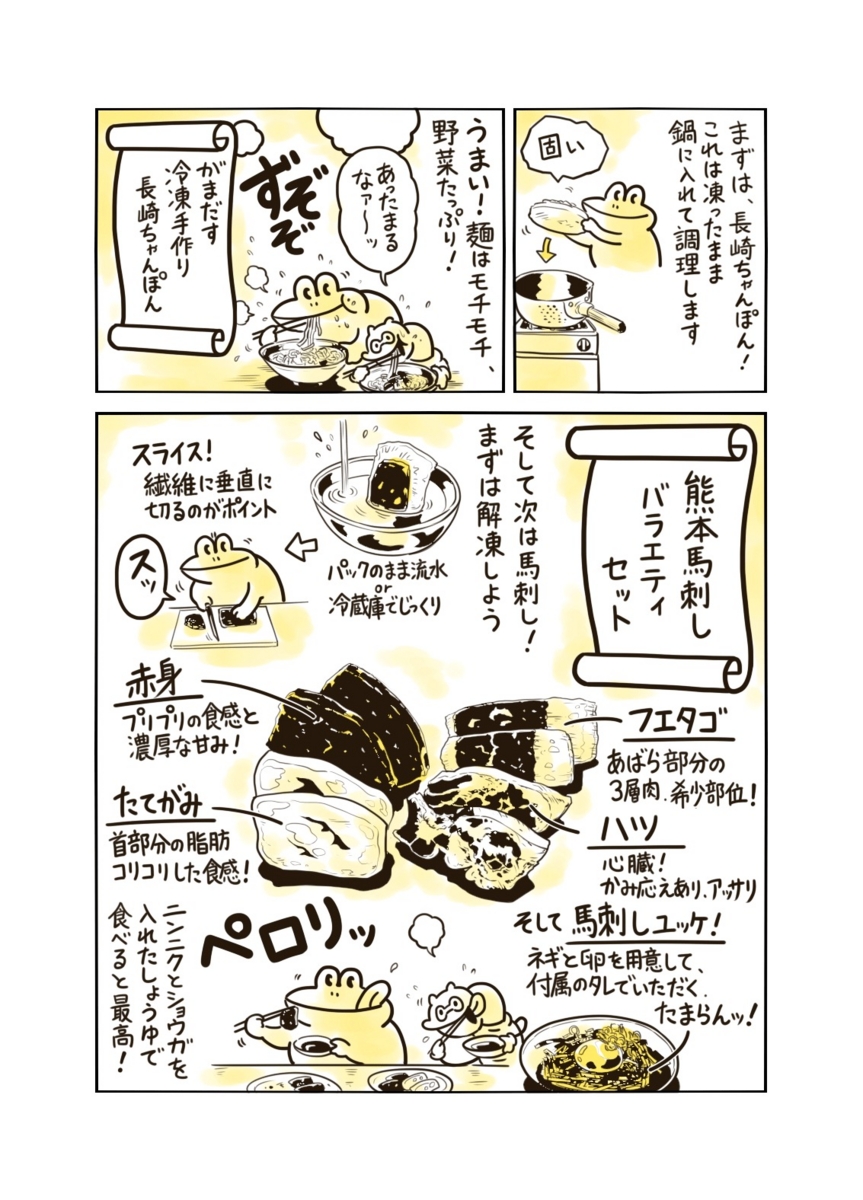 まずは、長崎ちゃんぽん!
これは凍ったまま
鍋に入れて調理します
固い
うまい!麺はモチモチ、
野菜たっぷり!
あったまる
なァ〜ッ
ずぞぞ
がまだす
冷凍手作り
長崎ちゃんぽん
熊本馬刺し
バラエティ
セット
そして次は馬刺し!
まずは解凍しよう
パックのまま流水
or
冷蔵庫でじっくり
スライス!
繊維に垂直に
切るのがポイント
スッ
フエタゴ
あばら部分の
3層肉.希少部位!
赤身
プリプリの食感と
濃厚な甘み!
たてがみ
首部分の脂肪
コリコリした食感!
ハツ
心臓!
かみ応えあり、アッサリ
そして馬刺しユッケ!
ネギと卵を用意して、
付属のタレでいただく.
たまらんッ!
ペロリッ
ニンニクとショウガを
入れたしょうゆで
食べると最高!